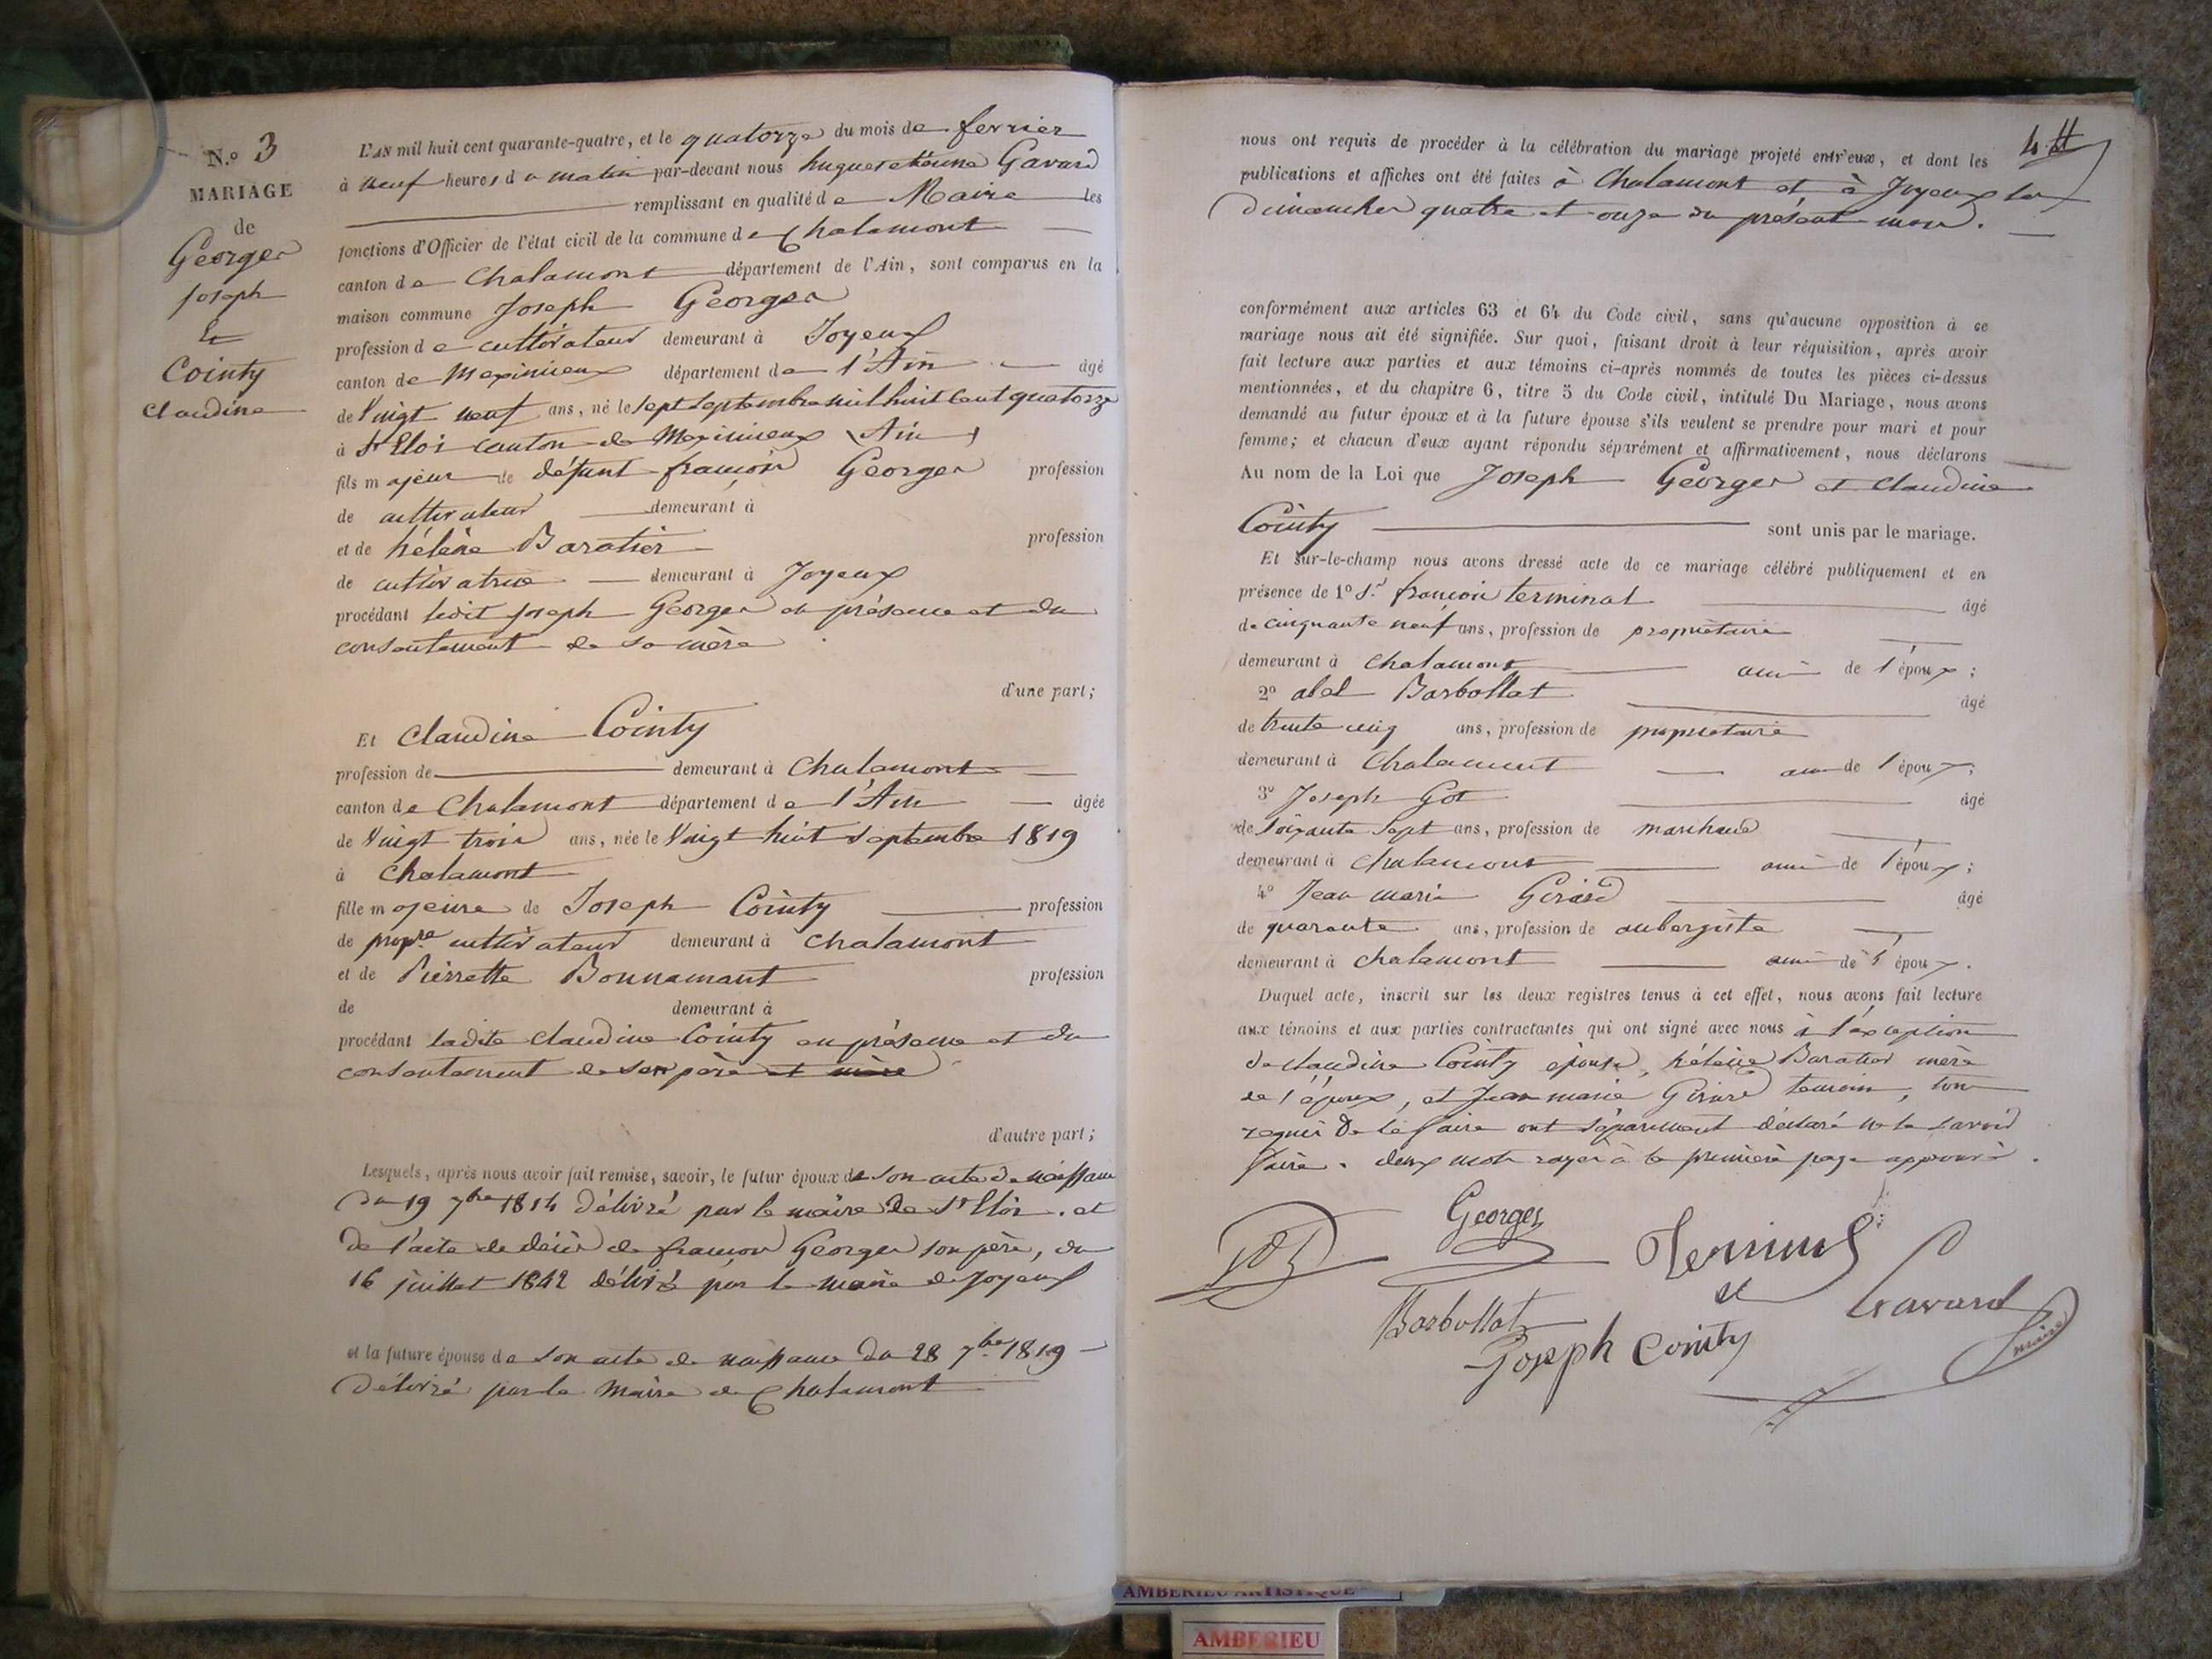 N.o 3
MARIAGE
de
Georges
Joseph
&
Cointy
Claudine
L'AN mil huit cent quarante-quatre, et le quatorze du mois de fevrier
à neuf heures du matin par-devant nous hugues etienne Gavard
remplissant en qualité de Maire les
fonctions d'Officier de l'état civil de la commune de Chalamont
canton de Chalamont département de l'Ain, sont comparus en la
maison commune Joseph Georges
profession de cultivateur demeurant à Joyeux
canton de Meximieux département de l'Ain âgé
de Vingt neuf ans, né le sept septembre mil huit cent quatorze
à St Eloi canton de Meximieux (Ain)
fils majeur de défunt françois Georges profession
de cultivateur demeurant à
et de hélène Baratier profession
de cultivatrice demeurant à Joyeux
procédant ledit joseph Georges en présence et du
consentement de sa mère
d'une part;
Et Claudine Cointy
profession de demeurant à Chalamont
canton de Chalamont département de l'Ain âgée
de Vingt trois ans, née le Vingt huit septembre 1819
à Chalamont
fille majeure de Joseph Cointy profession
de propre cultivateur demeurant à Chalamont
et de Pierrette Bonnamant profession
de demeurant à
procédant ladite Claudine Cointy en présence et du
consentement de son père et mère
d'autre part;
Lesquels, après nous avoir fait remise, savoir, le futur époux de son acte de naissance
du 19 7bre 1814 délivré par le maire de St Eloi. et
de l'acte de décès de françois Georges son père, du
16 juillet 1842 délivré par le maire de Joyeux
et la future épouse de son acte de naissance du 28 7bre 1819
délivré par le Maire de Chalamont
nous ont requis de procéder à la célébration du mariage projeté entr'eux, et dont les
publications et affiches ont été faites à Chalamont et à Joyeux les
dimanches quatre et onze du présent mois.
conformément aux articles 63 et 64 du Code civil, sans qu'aucune opposition à ce
mariage nous ait été signifiée. Sur quoi, faisant droit à leur réquisition, après avoir
fait lecture aux parties et aux témoins ci-après nommés de toutes les pièces ci-dessus
mentionnées, et du chapitre 6, titre 5 du Code civil, intitulé Du Mariage, nous avons
demandé au futur époux et à la future épouse s'ils veulent se prendre pour mari et pour
femme; et chacun d'eux ayant répondu séparément et affirmativement, nous déclarons
Au nom de la Loi que Joseph Georges et Claudine
Cointy sont unis par le mariage.
Et sur-le-champ nous avons dressé acte de ce mariage célébré publiquement et en
présence de 1o Sr françois terminal âgé
de cinquante neuf ans, profession de propriétaire
demeurant à Chalamont ami de l'époux;
2o abel Barbollat âgé
de trente cinq ans, profession de propriétaire
demeurant à Chalamont ami de l'époux;
3o Joseph Got âgé
de soixante sept ans, profession de marchand
demeurant à Chalamont ami de l'époux;
4o Jean marie Girard âgé
de quarante ans, profession de aubergiste
demeurant à Chalamont ami de l'époux.
Duquel acte, inscrit sur les deux registres tenus à cet effet, nous avons fait lecture
aux témoins et aux parties contractantes qui ont signé avec nous à l'exception
de claudine Cointy épouse, hélène Baratier mère
de l'époux, et Jean marie Girard temoin, tous
requis de le faire ont séparément déclaré ne le savoir
faire. deux mots rayés à la première page approuvés.
Georges
Terminal
Barbollat
Gavard
maire
Joseph Cointy
AMBERIEU ARTISTIQUE
AMBERIEU